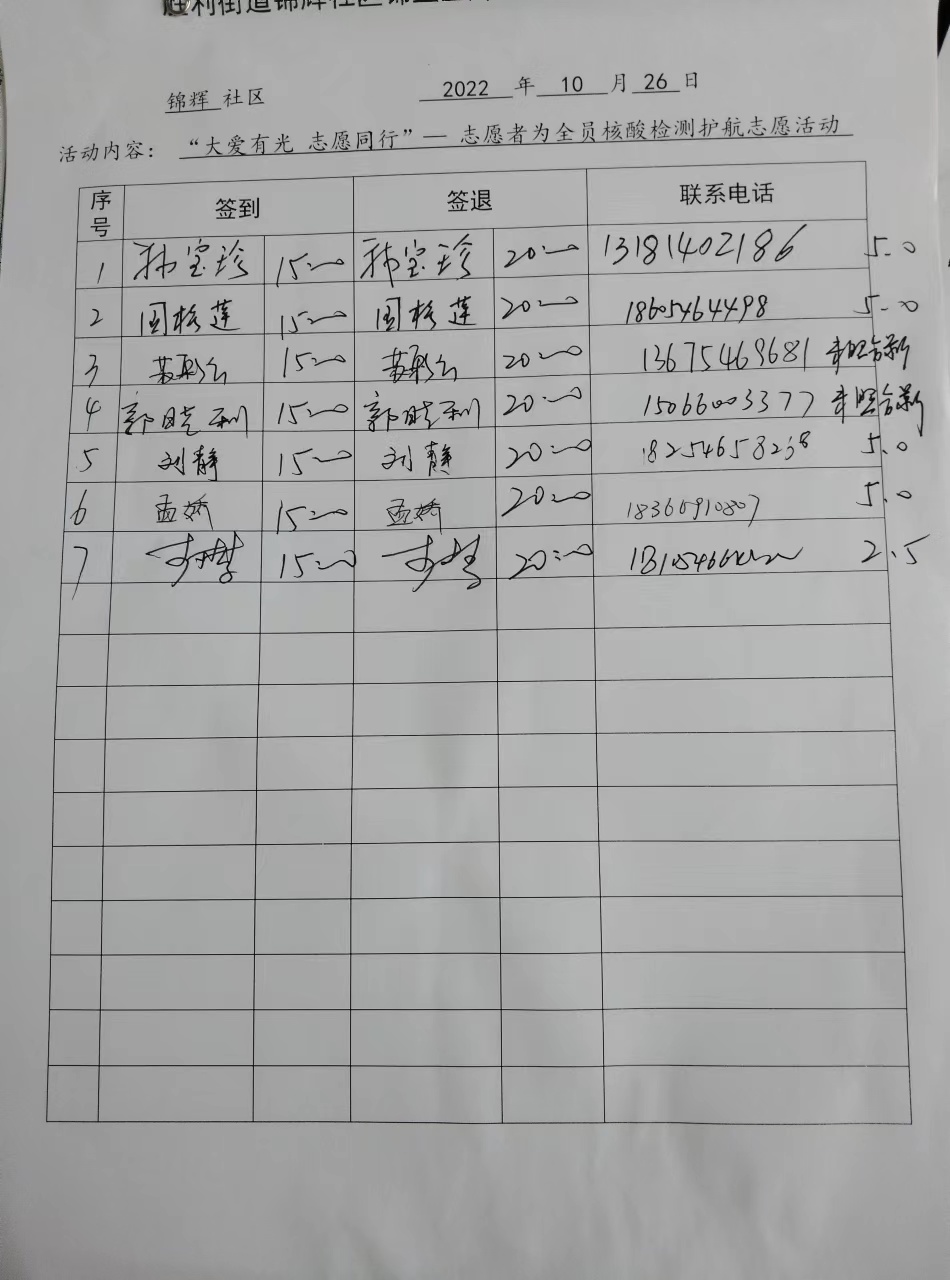 胜利街道锦辉社区
锦辉 社区 2022 年 10 月 26 日
活动内容： “大爱有光 志愿同行”— 志愿者为全员核酸检测护航志愿活动
序号 签到 签退 联系电话
1 宝珍 15:00 宝珍 20:00 13181402186 5.0
2 国格莲 15:00 国格莲 20:00 18605464498 5.0
3 15:00 20:00 13675469681
4 郭晓利 15:00 郭晓利 20:00 15066003377
5 刘静 15:00 刘静 20:00 18254658238 5.0
6 孟娇 15:00 孟娇 20:00 18365910807 5.0
7 15:00 20:00 2.5